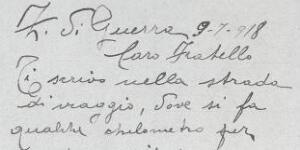 Z. di Guerra 9-7-918
Caro Fratello
Ti scrivo nella strada
di viaggio, dove si fa
qualche chilometro per